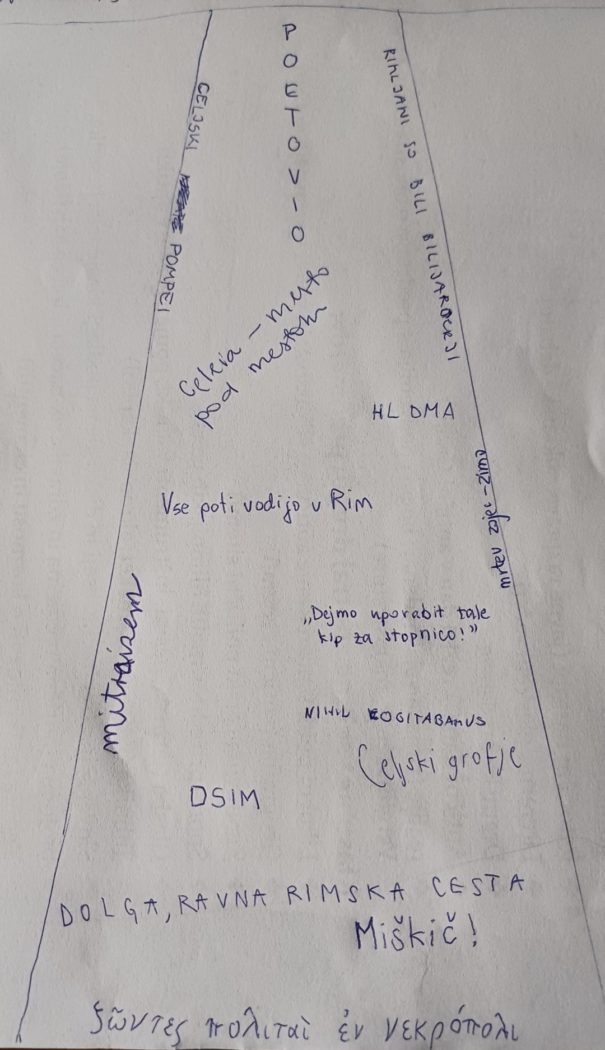 POETOVIO
RIMLJANI SO BILI BILIJARDERJI
CELJSKI POMPEI
Celeia – mesto
pod mestom
HL DMA
mrtev zajec – zima
Vse poti vodijo v Rim
mitraizem
„Dejmo uporabit tale
kip za stopnico!”
NIHIL COGITABAMUS
Celjski grofje
DSIM
DOLGA, RAVNA RIMSKA CESTA
Miškič!
ζῶντες πολιταὶ ἐν νεκρόπολι